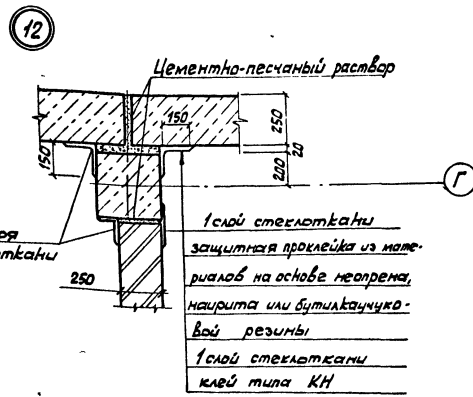 12
Цементно-песчаный раствор
150
250
20
200
150
Г
1 слой стеклоткани
защитная проклейка из мате-
риалов на основе неопрена,
наирита или бутилкаучуко-
вой резины
1 слой стеклоткани
клей типа КН
250